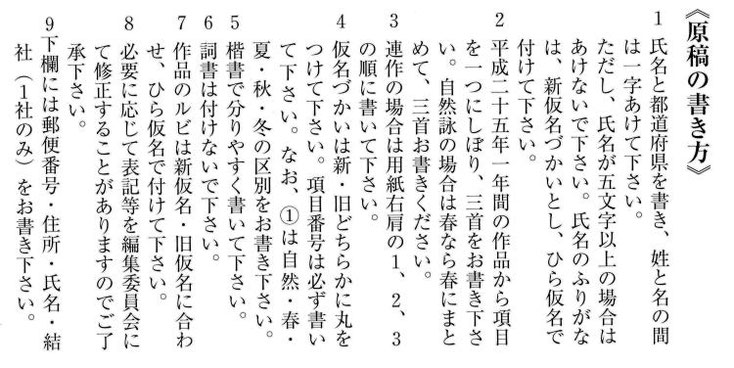 《原稿の書き方》
1 氏名と都道府県を書き、姓と名の間
は一字あけて下さい。
ただし、氏名が五文字以上の場合は
あけないで下さい。氏名のふりがな
は、新仮名づかいとし、ひら仮名で
付けて下さい。
2 平成二十五年一年間の作品から項目
を一つにしぼり、三首をお書き下さ
い。自然詠の場合は春なら春にまと
めて、三首お書きください。
3 連作の場合は用紙右肩の1、2、3
の順に書いて下さい。
4 仮名づかいは新・旧どちらかに丸を
つけて下さい。項目番号は必ず書い
て下さい。なお、①は自然・春・
夏・秋・冬の区別をお書き下さい。
5 楷書で分りやすく書いて下さい。
6 詞書は付けないで下さい。
7 作品のルビは新仮名・旧仮名に合わ
せ、ひら仮名で付けて下さい。
8 必要に応じて表記等を編集委員会に
て修正することがありますのでご了
承下さい。
9 下欄には郵便番号・住所・氏名・結
社（1社のみ）をお書き下さい。